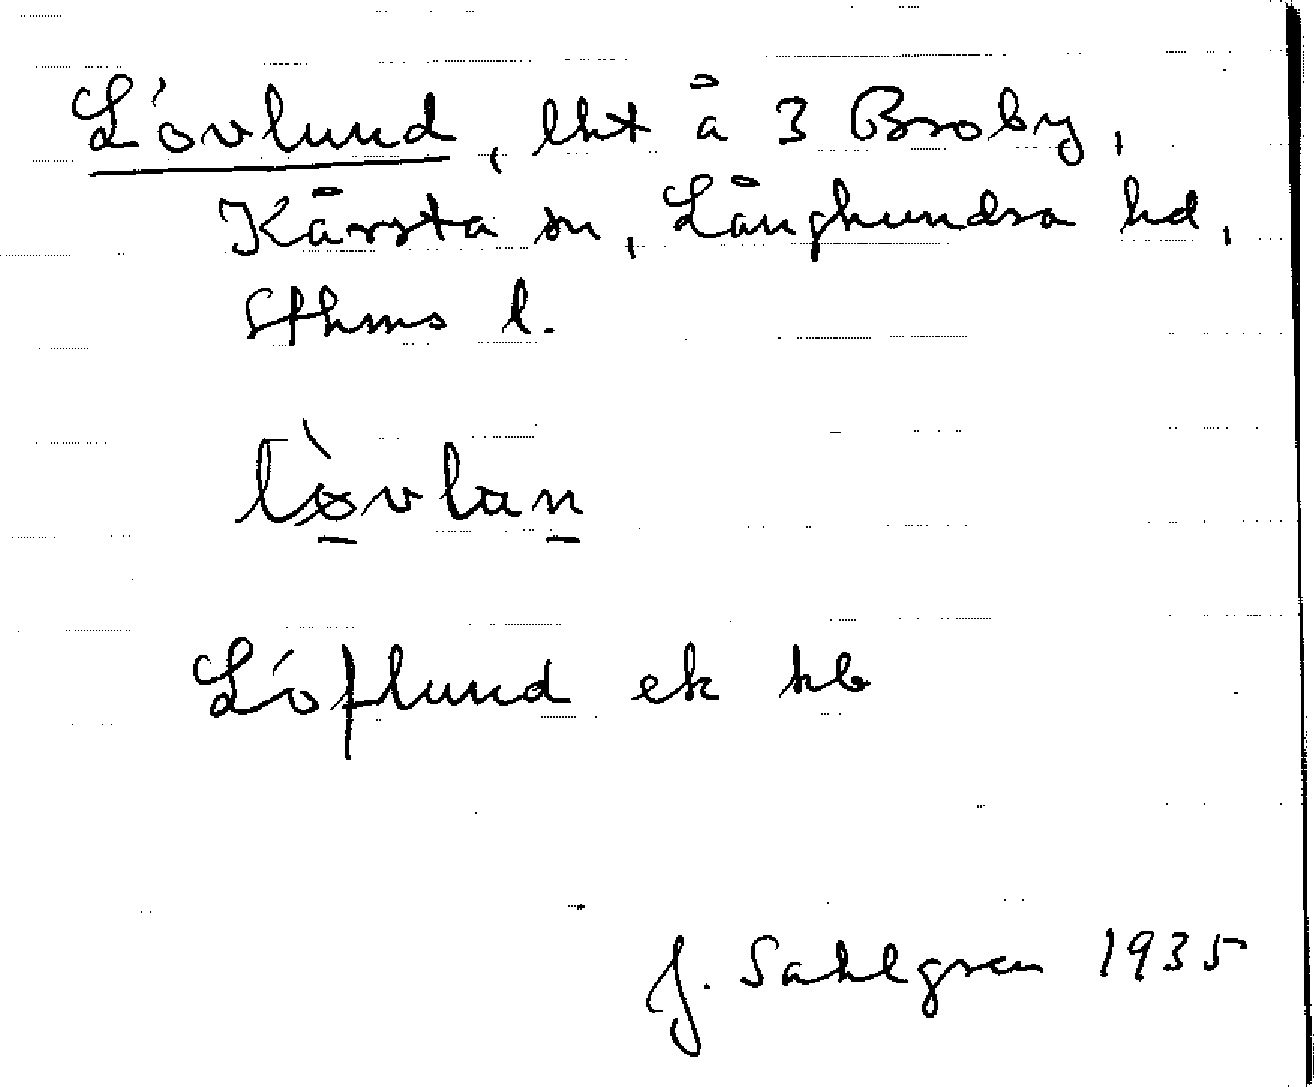 Lövlund, lht å 3 Broby,
Kårsta sn, Långhundra hd,
Sthms l.
lòvlan
Löflund ek kb
J. Sahlgren 1935